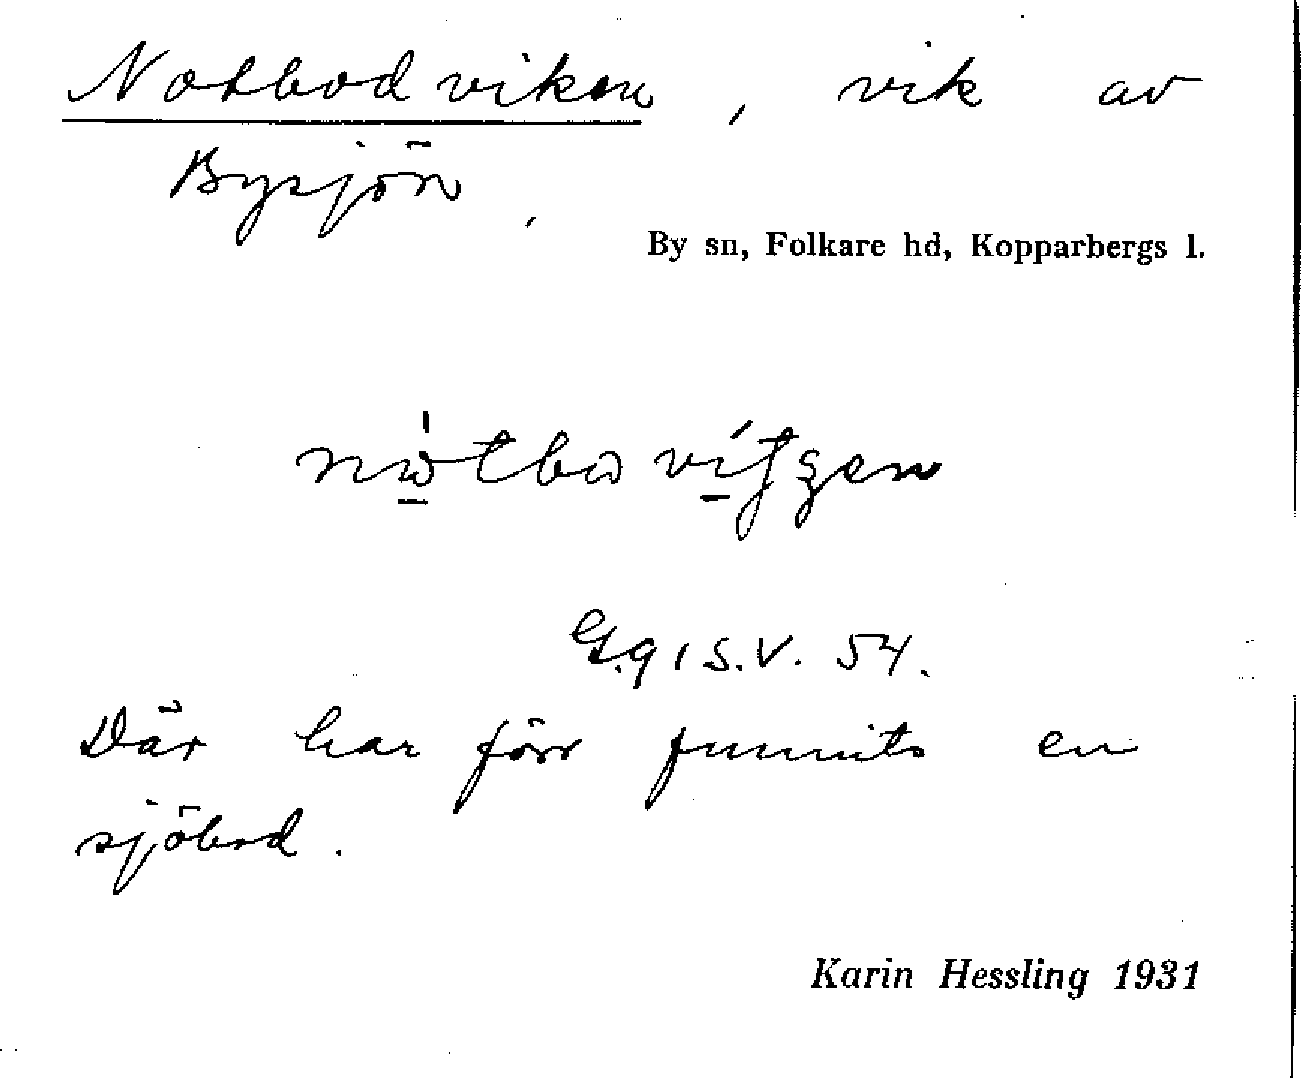 Notbodviken, vik av
Bysjön,
By sn, Folkare hd, Kopparbergs l.
S.V. 54.
Där har förr funnits en
sjöbod.
Karin Hessling 1931